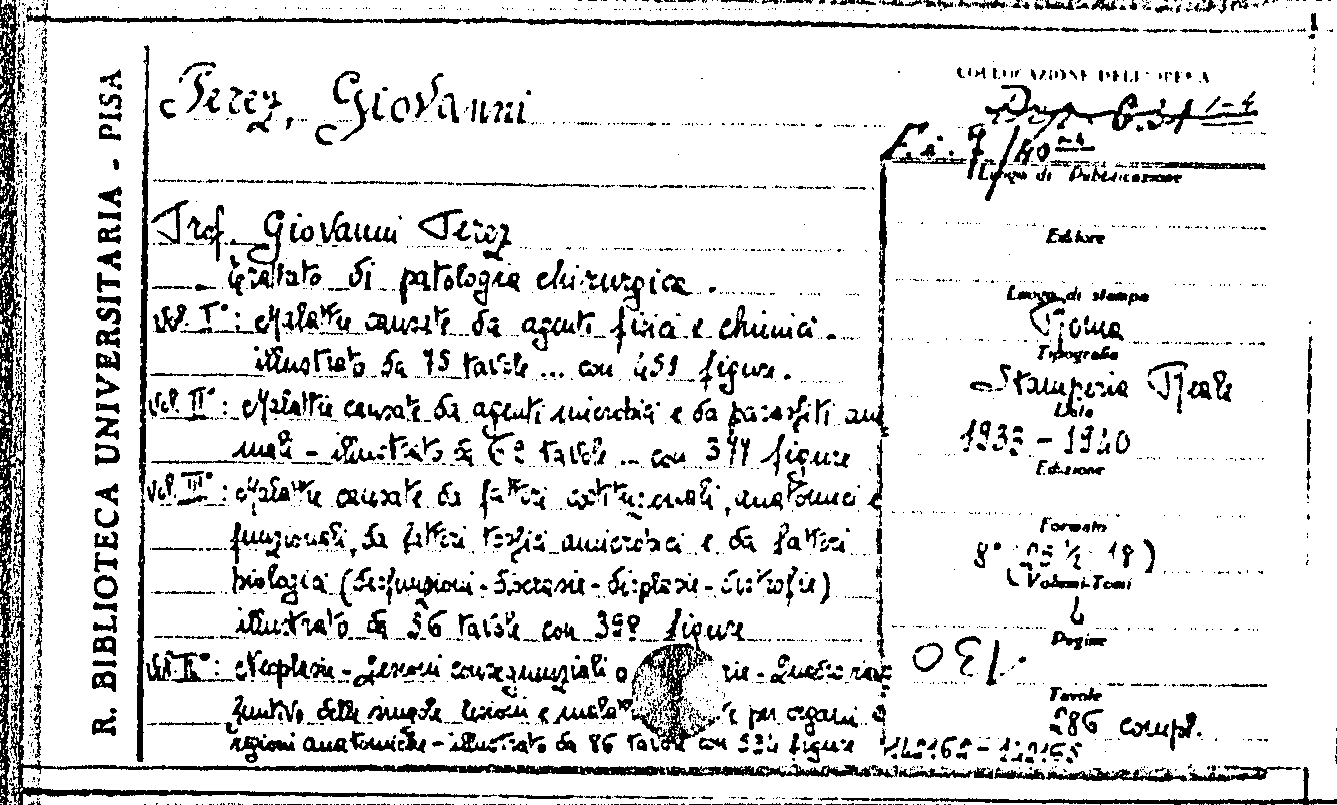 R. BIBLIOTECA UNIVERSITARIA - PISA
COLLOCAZIONE DELL'OPERA
Perez, Giovanni
Luogo di Pubblicazione
Prof. Giovanni Perez
Editore
Trattato di patologia chirurgica.
Luogo di stampa
Roma
Vol. I°: Malattie causate da agenti fisici e chimici.
Tipografia
illustrato da 75 tavole ... con 459 figure.
Stamperia Reale
Data
Vol. II°: Malattie causate da agenti microbici e da parassiti ani
1933 - 1940
mali - illustrato da tavole ... con 377 figure
Edizione
Vol. III°: Malattie causate da fattori costituzionali, anatomici e
funzionali, da fattori tossici amicrobici e da fattori
Formato
8°
biologici (disfunzioni - discrasie - displasie - distrofie)
Volumi-Tomi
4
illustrato da 56 tavole con 398 figure
Pagine
Vol. IV°: Neoplasie - Lesioni conseguenziali - Quadro rias
130.
Tavole
suntivo delle singole lesioni e per organi e
286 compl.
regioni anatomiche - illustrato da 86 tavole con 534 figure